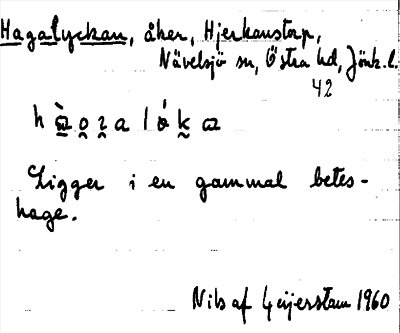 Hagalyckan, åker, Hjerkanstorp,
Nävelsjö sn, Östra hd, Jönk. l.
42
Ligger i en gammal betes-
hage.
Nils af Geijerstam 1960